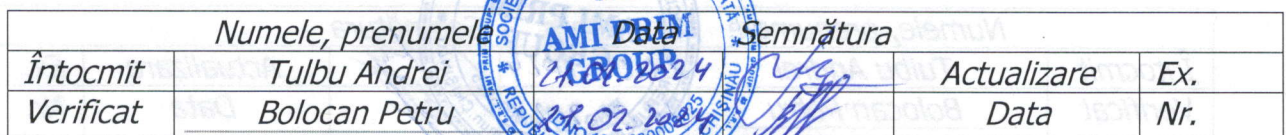 Numele, prenumele Data Semnătura
Întocmit Tulbu Andrei 2024 Actualizare Ex.
Verificat Bolocan Petru 21.02.2024 Data Nr.
AMI PRIM
GROUP